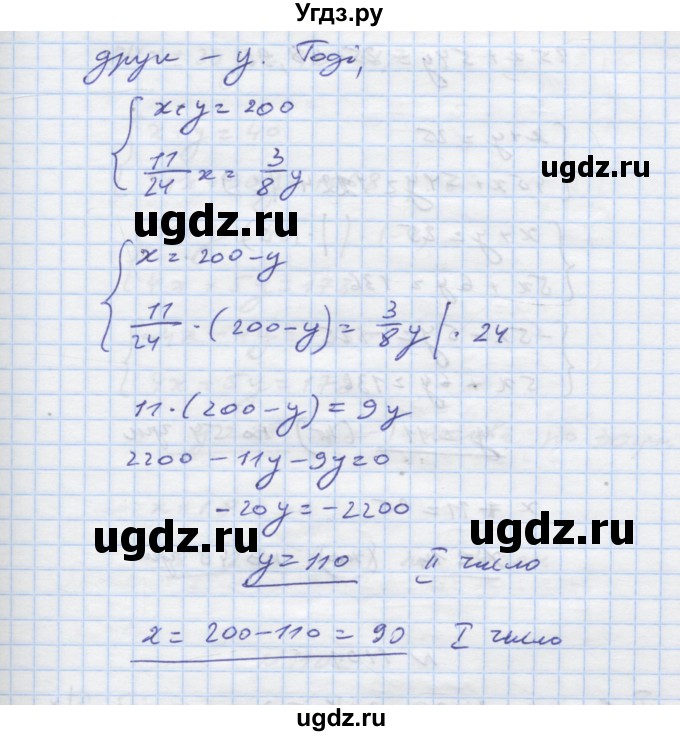 Угдз.ру
друге – y. Тоді,
x+y = 200
11/24 x = 3/8 y
ugdz.ru
ugdz.ru
x = 200 – y
11/24 · (200 – y) = 3/8 y | · 24
11 · (200 – y) = 9y
2200 – 11y – 9y = 0
– 20y = – 2200
ugdz.ru
ugdz.ru
y = 110 II число
x = 200 – 110 = 90 I число
ugdz.ru